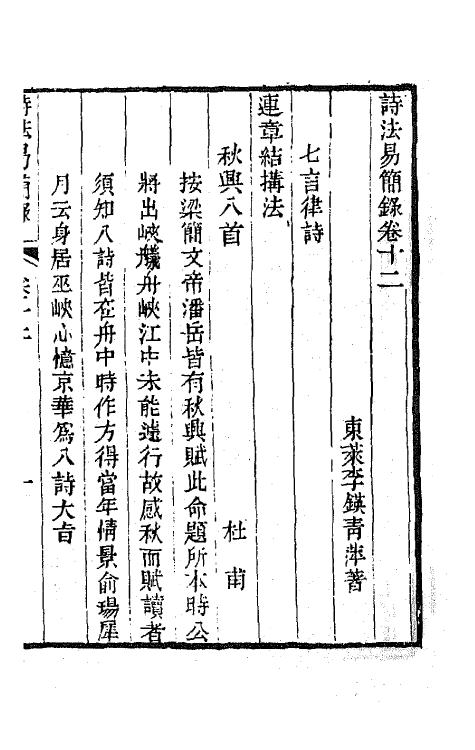 詩法易簡錄卷十二
東萊李鍈青萍著
七言律詩
連章結搆法
秋興八首
杜甫
按梁簡文帝潘岳皆有秋興賦此命題所本時公
將出峽艤舟峽江中未能遽行故感秋而賦讀者
須知八詩皆在舟中時作方得當年情景俞瑒犀
月云身居巫峽心憶京華為八詩大旨
詩法易簡錄
卷十二
一